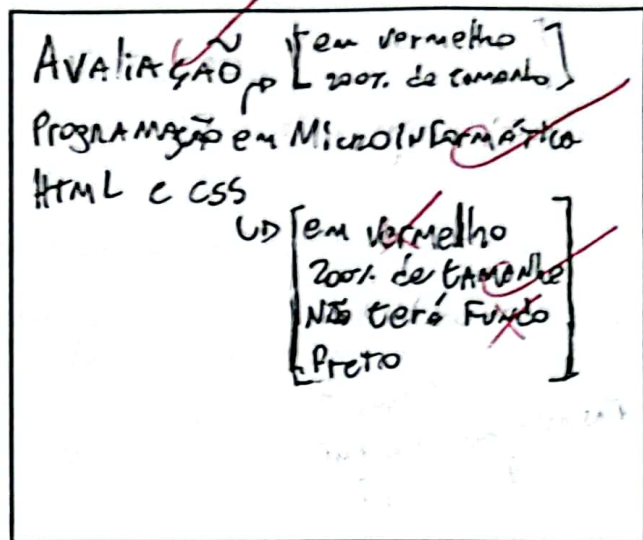 AVAliAÇÃO → [em vermelho
200% de tamanho]
PrograMAção em MicroINformática
HTML e CSS
↳ [em vermelho
200% de tamanho
Não terá Fundo
Preto]